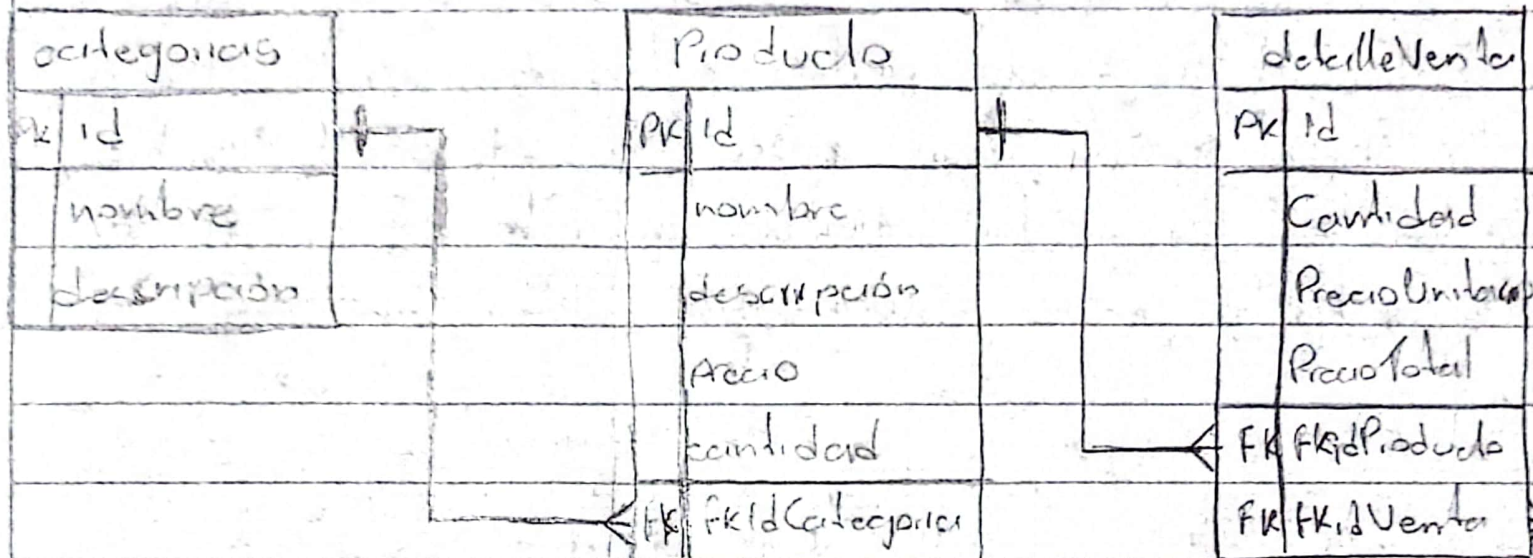 categorias
PK id
nombre
descripción
Producto
PK id
nombre
descripción
Precio
cantidad
FK fkIdCategoria
detalleVenta
PK id
Cantidad
PrecioUnitario
PrecioTotal
FK FKidProducto
FK FKidVenta